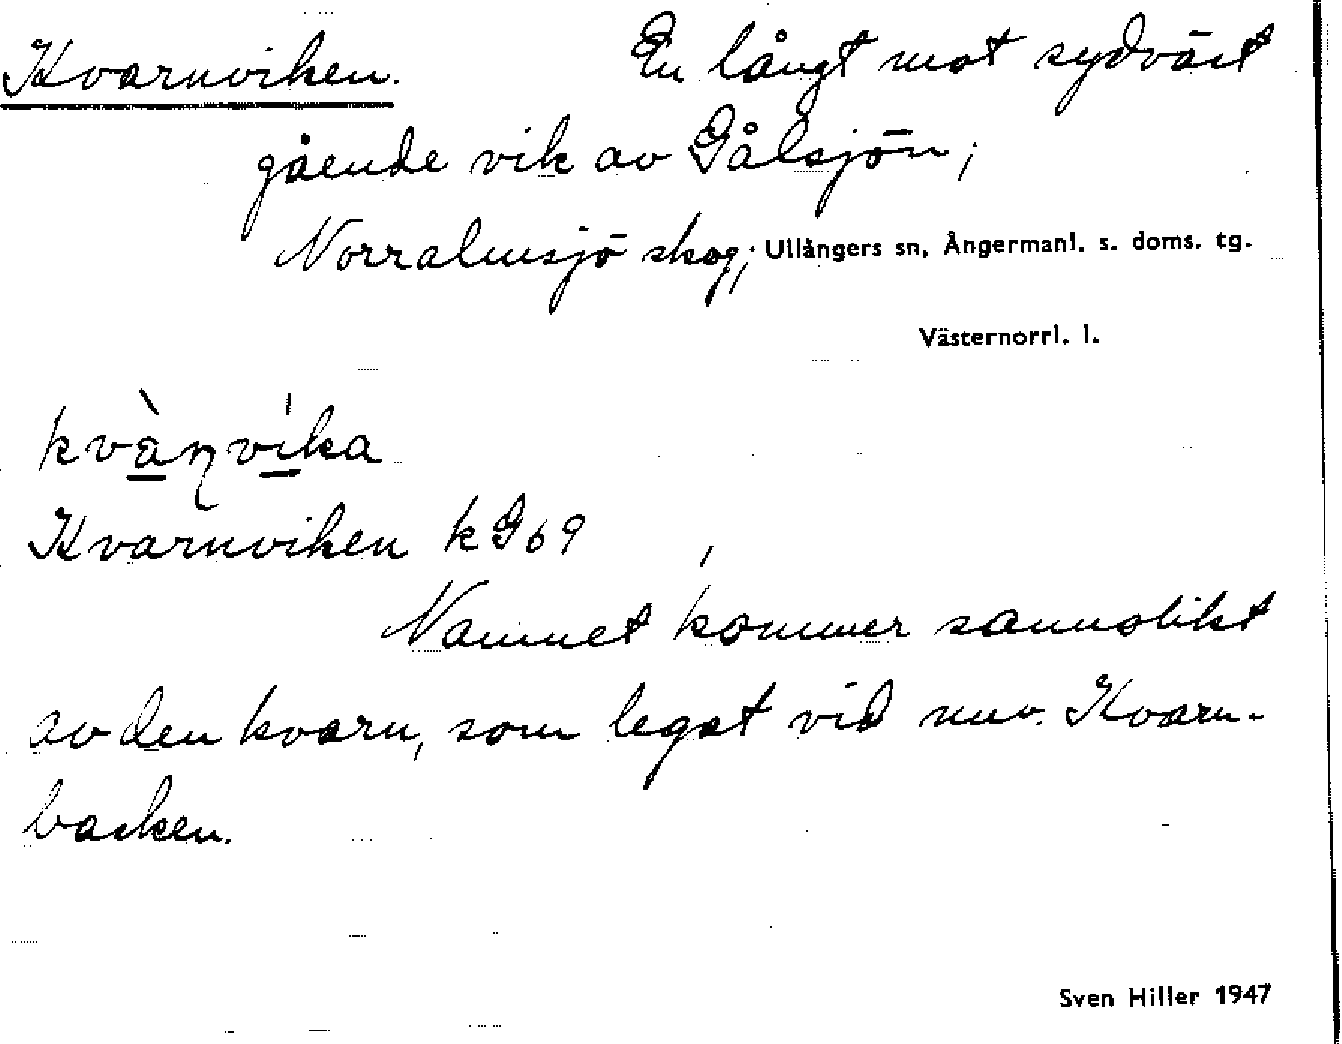 Kvarnviken. En långt mot sydväst
gående vik av Gålsjön;
Norralmsjö skog; Ullångers sn, Ångermanl. s. doms. tg.
Västernorrl. l.
kvàɳvíka
Kvarnviken kG69
Namnet kommer sannolikt
av den kvarn, som legat vid nuv. Kvarn-
backen.
Sven Hiller 1947